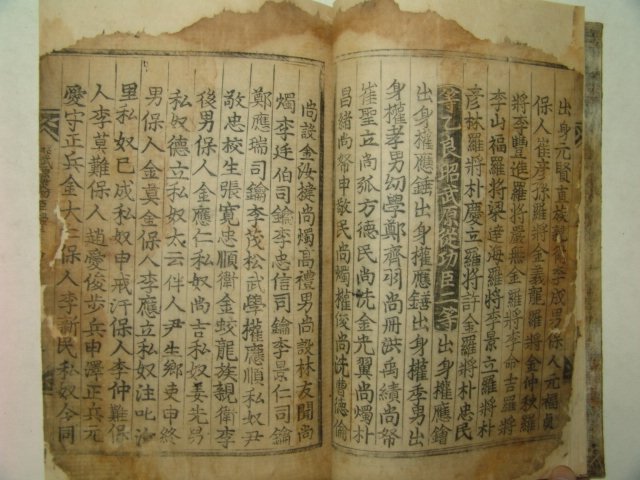 出身元賢直族親衛李成男保人元福貞
保人崔彦孫羅將金義龍羅將金仲秋羅
將李豊進羅將嚴悉金羅將李命吉羅將
李山福羅將梁達海羅將李景立羅將朴
彦林羅將朴慶立羅將許金羅將朴忠民
等乙良昭武原從功臣二等出身權應鑰
出身權應銈出身權應鐥出身權李男出
身權孝男幼學鄭齊羽尚冊洪禹績尚帑
崔聖立尚弧方德民尚洗金光翼尚燭朴
昌緖尚帑申敬民尚燭權俊尚洗曹德倫
尚設金汝揵尚燭高禮男尚設林友聞尚
燭李廷伯司鑰李忠信司鑰李景仁司鑰
鄭應瑞司鑰李茂松武學權應順私奴尹
敬忠校生張寬忠順衛金蛟龍族親衛李
後男保人金應仁私奴尚吉私奴姜光男
私奴德立私奴太云伴人尹生鄕吏申終
男保人金莫金保人李應立私奴注叱
里私奴巳成私奴申戒汗保人李仲難保
人李莫難保人趙愛俊步兵申澤正兵元
愛守正兵金大仁保人李新民私奴今同